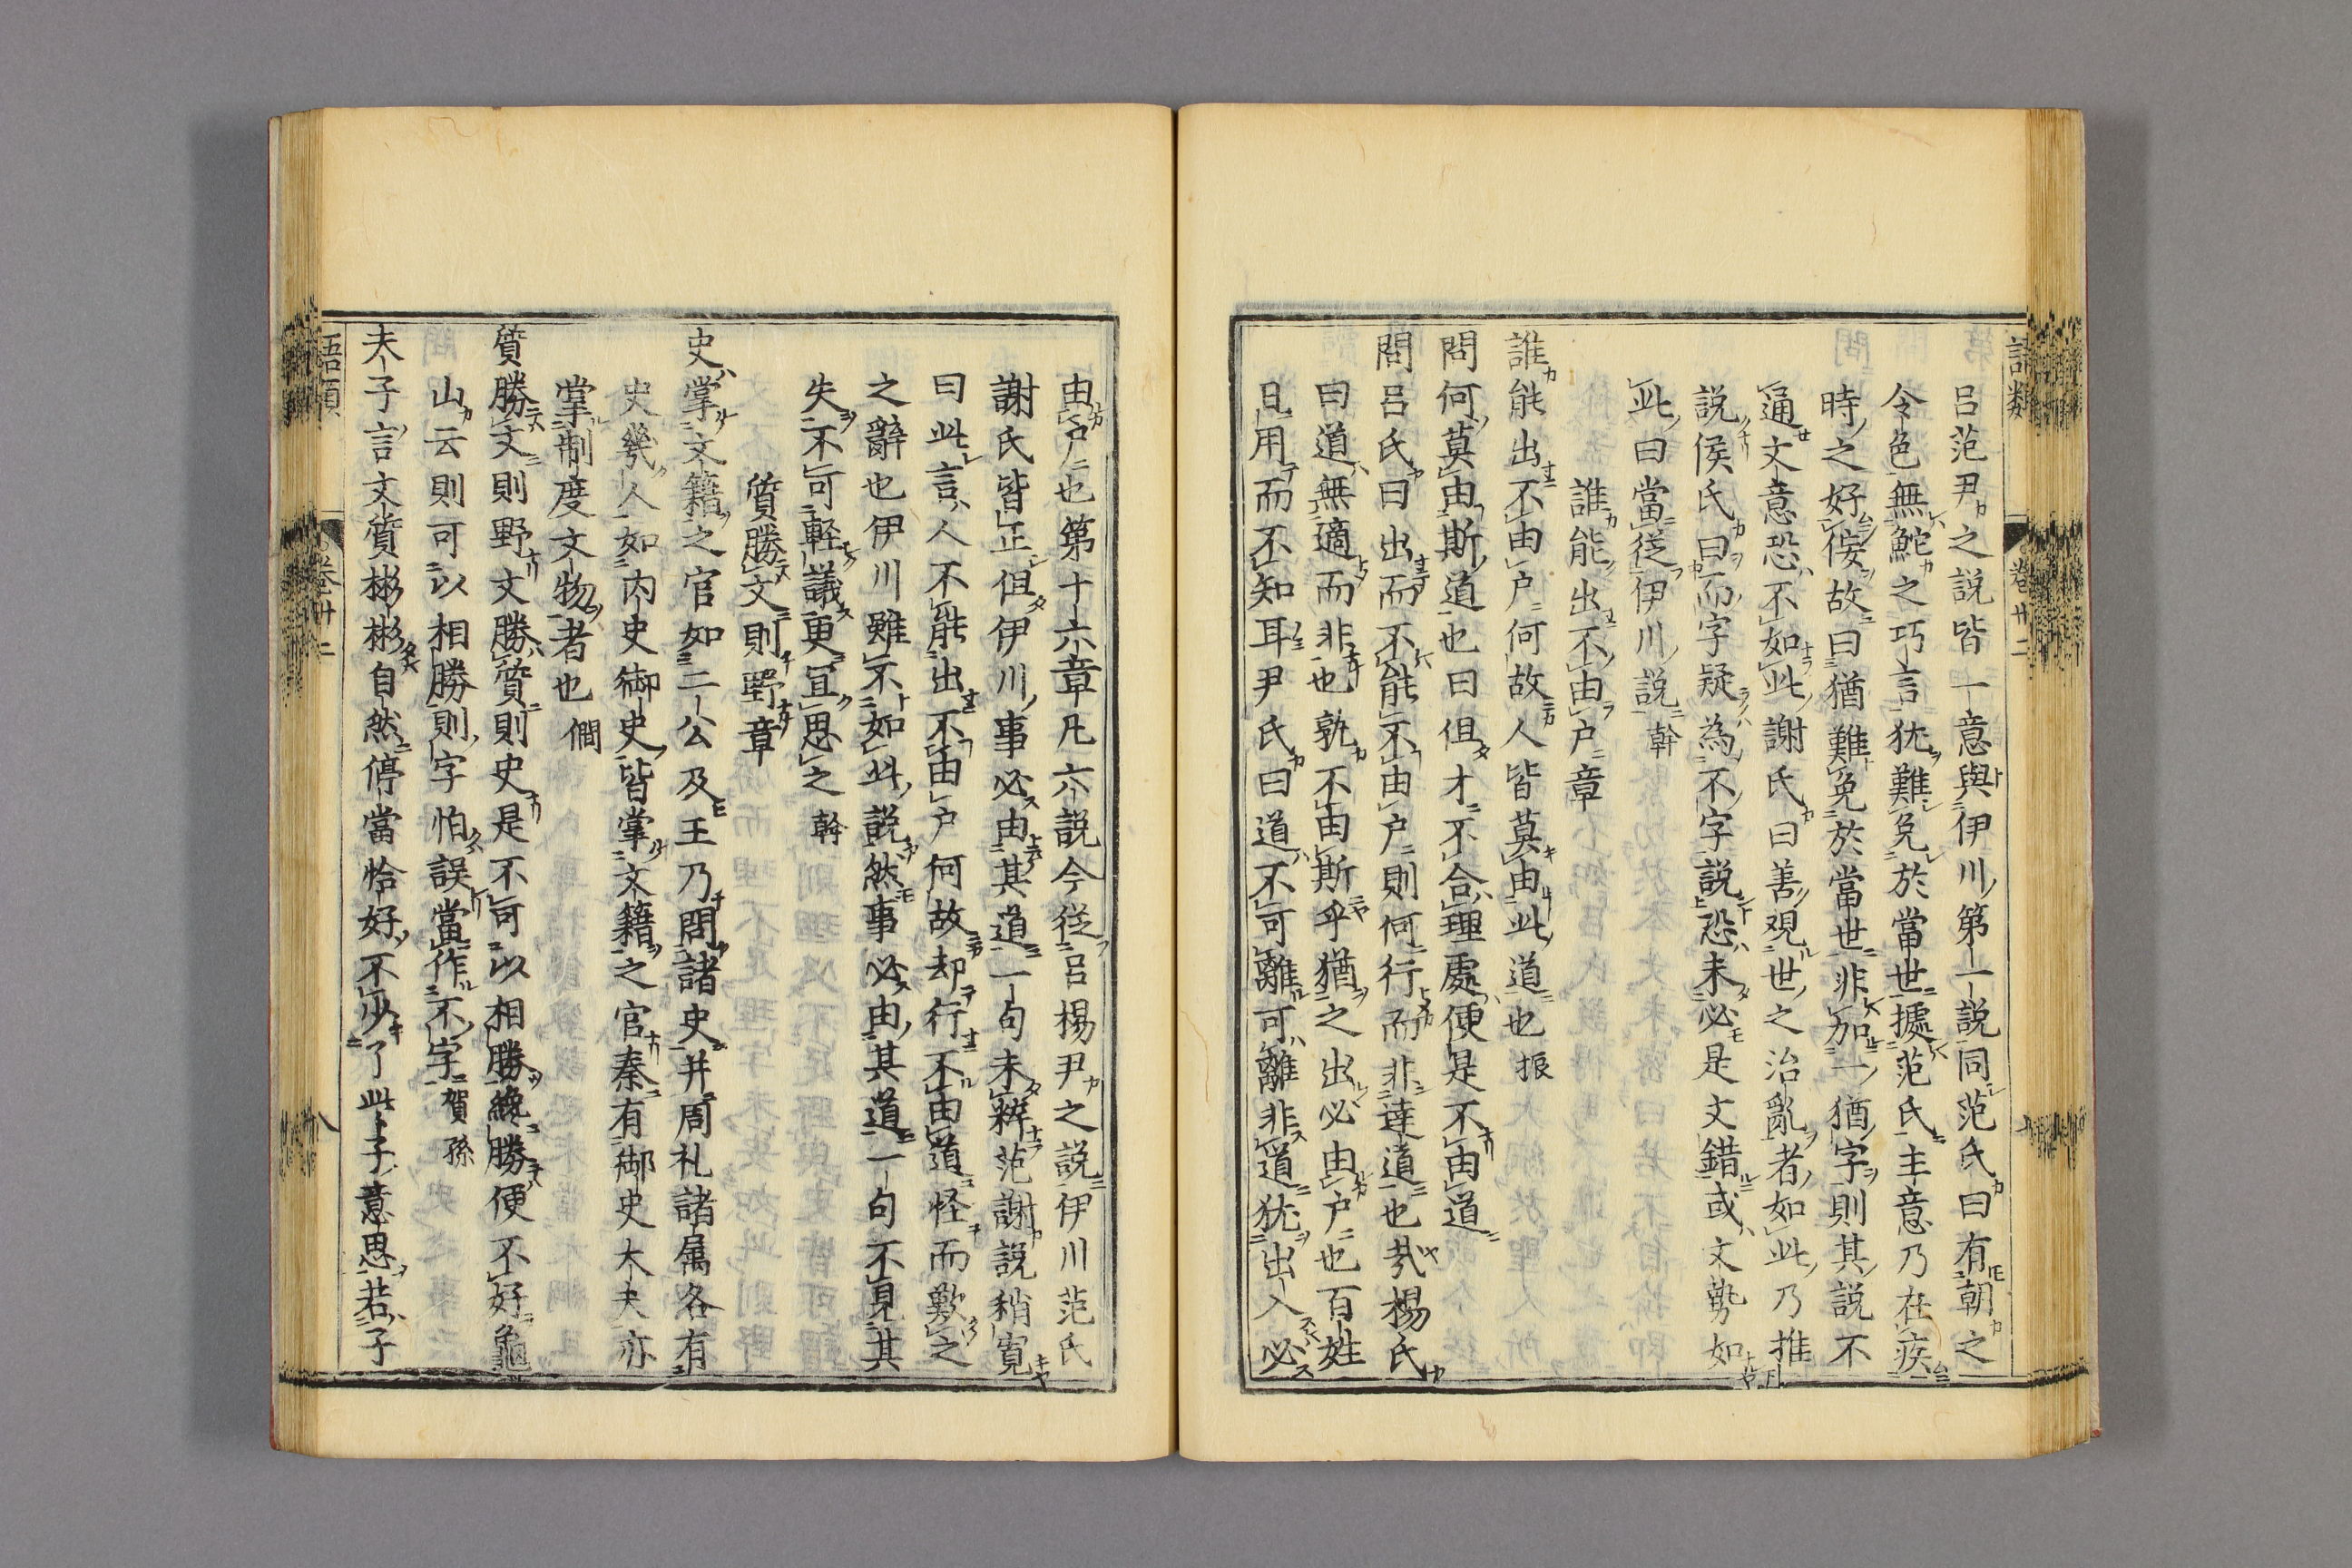 語類 卷卅二
呂范尹之説皆一意與伊川第一説同范氏曰有朝之
令色無鮀之巧言犹難免於當世據范氏主意乃在疾
時之好佞故曰猶難免於當世非加一猶字則其説不
通文意恐不如此謝氏曰善觀世之治亂者如此乃推
説侯氏曰而字疑為不字説恐未必是文錯或文勢如
此曰當從伊川説 幹
誰能出不由户章
誰能出不由户何故人皆莫由此道也 振
問何莫由斯道也曰但才不合理處便是不由道
問呂氏曰出而不能不由户則何行而非達道也㢤楊氏
曰道無適而非也孰不由斯乎猶之出必由户也百姓
日用而不知耳尹氏曰道不可離可離非道犹出入必
由户也第十六章凡六説今從呂楊尹之説伊川范氏
謝氏皆正但伊川事必由其道一句未粹范謝説稍寛
曰此言人不能出不由户何故却行不由道怪而歎之
之辭也伊川雖不如此説然事必由其道一句不見其
失不可輕議更宜思之 幹
質勝文則野章
史掌文籍之官如二公及王乃問諸史并周礼諸属各有
史幾人如内史御史皆掌文籍之官秦有御史大夫亦
掌制度文物者也 僩
質勝文則野文勝質則史是不可以相勝纔勝便不好龜
山云則可以相勝則字怕誤當作不字 賀孫
夫子言文質彬彬自然停當恰好不少了此子意思若子
語類 卷卅二 八